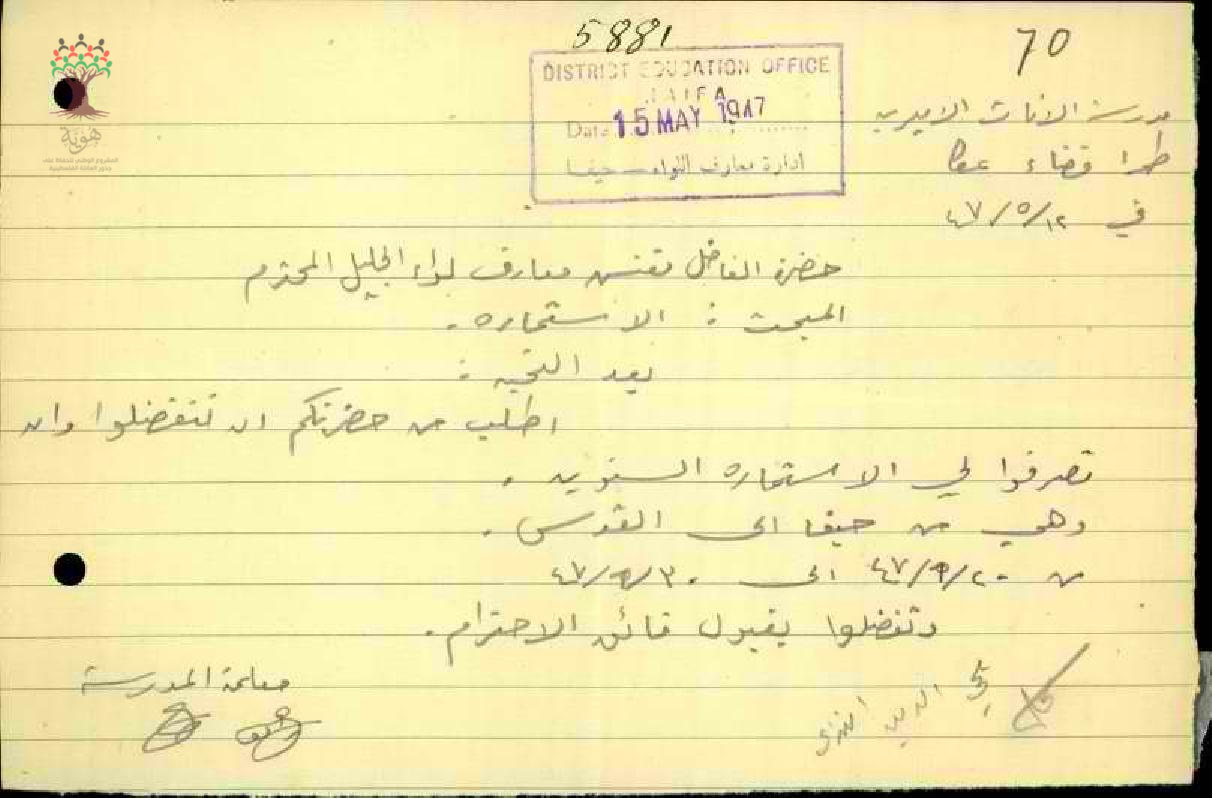 5881
70
DISTRICT EDUCATION OFFICE
HAIFA
Date 15 MAY 1947
ادارة معارف اللواء — حيفا
هوية
المشروع الوطني للحفاظ على
جذور العائلة الفلسطينية
مدرسة الاناث الاميرية
قضاء عكا
في ١٢/٥/٤٧
حضرة الفاضل مفتش معارف لواء الجليل المحترم
المبحث : الاستماره .
بعد التحيه :
اطلب من حضرتكم ان تتفضلوا وان
تصرفوا لي الاستماره السنويه .
وهي من حيفا الى القدس .
من ٢٠/٩/٤٧ الى ٣٠/٩/٤٧
وتفضلوا بقبول فائق الاحترام .
معلمة المدرسة
الدين